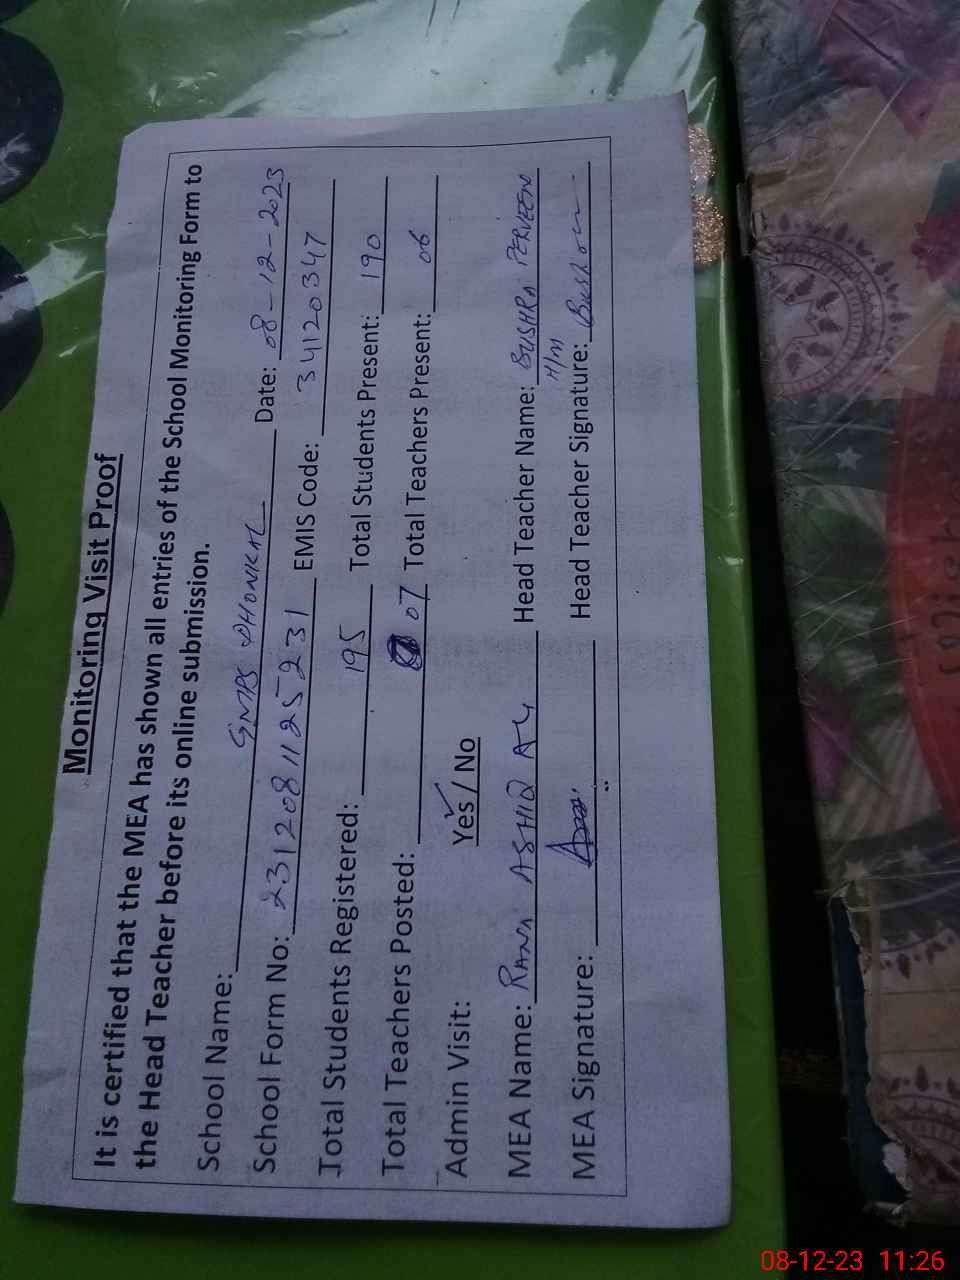 Monitoring Visit Proof
It is certified that the MEA has shown all entries of the School Monitoring Form to
the Head Teacher before its online submission.
School Name: GMPS DHONKAL Date: 08-12-2023
School Form No: 2312081125231 EMIS Code: 34120347
Total Students Registered: 195 Total Students Present: 190
Total Teachers Posted: 07 Total Teachers Present: 06
Admin Visit: Yes / No
MEA Name: RANA ASHIQ ALI Head Teacher Name: BUSHRA PERVEEN
H/M
MEA Signature: Head Teacher Signature: Bushra
08-12-23 11:26